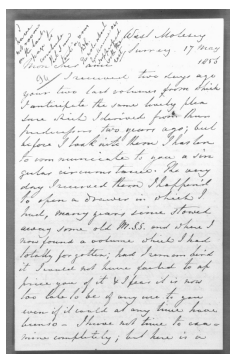 West Molesey
Surrey 17 May
1856
I received two days ago
your two last volumes from which
I anticipate the same lovely plea
sure which I derived from their
predecessors two years ago; but
before I back with them I hasten
to communicate to you a sin
gular circumstance. The very
day I received them I happened
to open a drawer in which I
had, many years since stowed
away some old M.S.S. and where I
now found a volume which I had
totally forgotten; had I remembered
it I would not have failed to ap
prize you of it & I fear it is now
too late to be of any use to you
even if it could at any time have
been so - I have not time to exa-
mine completely; but here is a